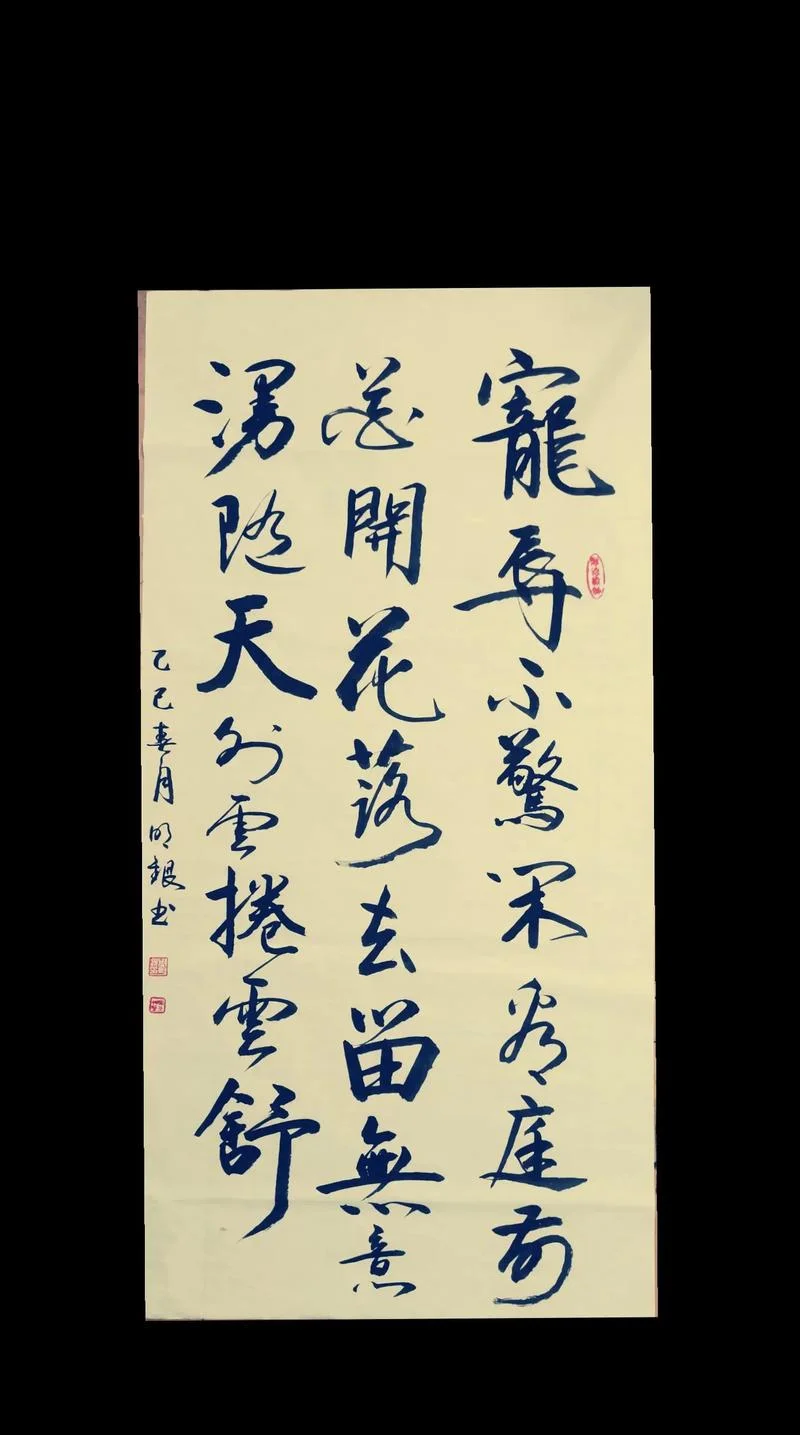 寵辱不驚閑看庭前
花開花落去留無意
漫隨天外雲捲雲舒
乙巳春月明銀书